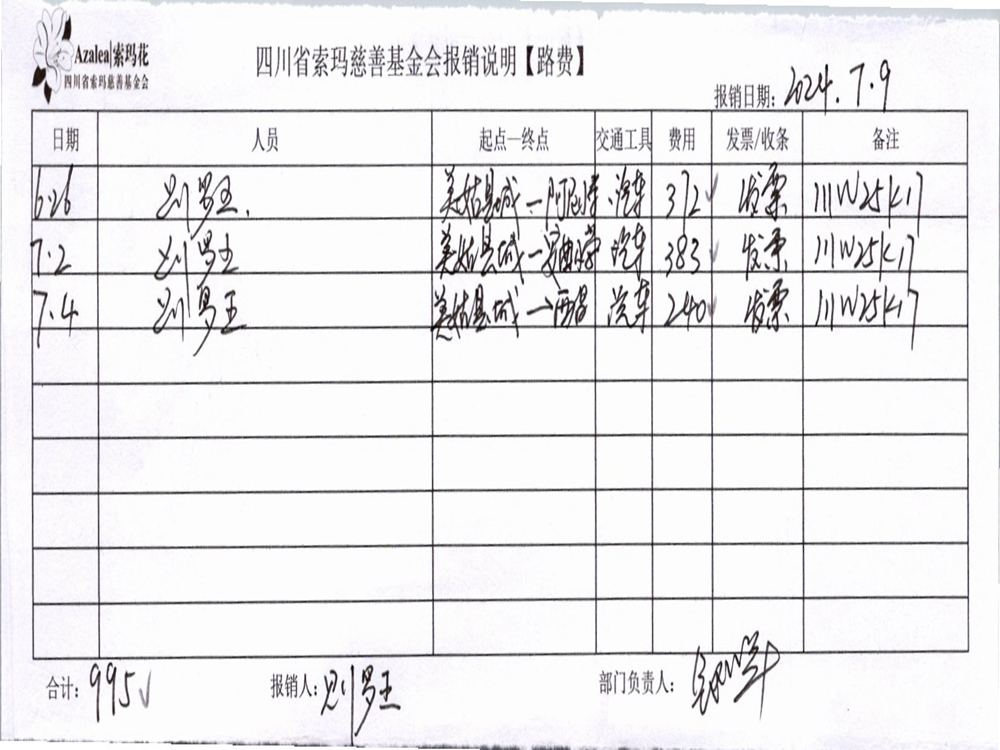 Azalea|索玛花
四川省索玛慈善基金会
四川省索玛慈善基金会报销说明【路费】
报销日期：2024.7.9
日期 人员 起点—终点 交通工具 费用 发票/收条 备注
6.26 罗王 美姑县城— 汽车 372 发票 川W25K17
7.2 罗王 美姑县城— 汽车 383 发票 川W25K17
7.4 罗王 美姑县城→西昌 汽车 240 发票 川W25K17
合计：995 报销人： 罗王 部门负责人：